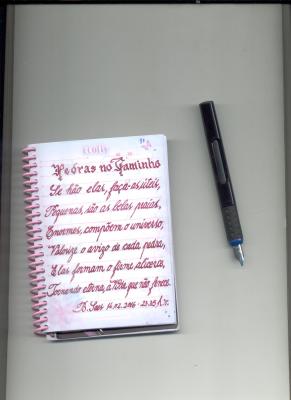 Pedras no Caminho
Se hão elas, faça-as úteis,
Pequenas, são as belas praias,
Enormes, compõem o universo,
Valorize o avizo de cada pedra,
Elas formam o firme alicerce,
Tornando eterna, a Ponte que não finece.